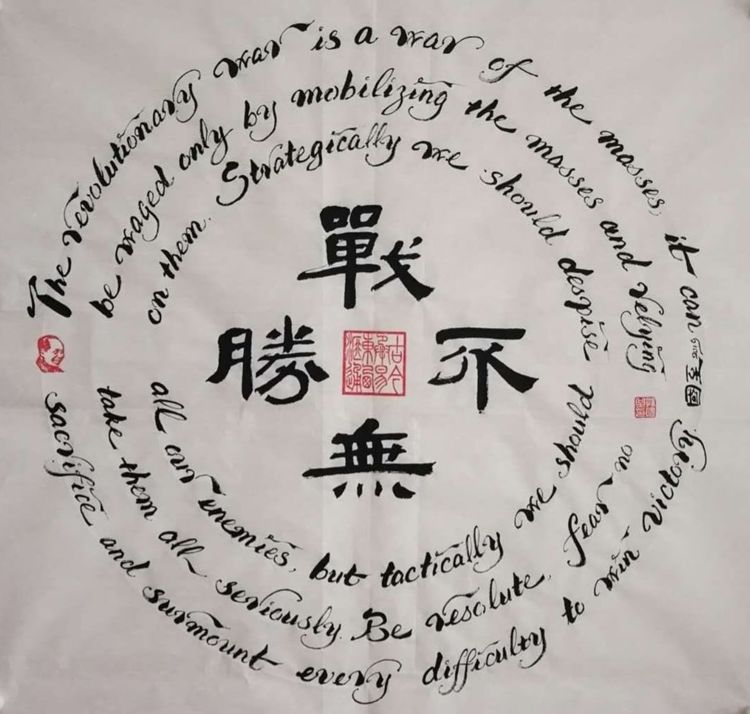 The revolutionary war is a war of the masses, it can
be waged only by mobilizing the masses and relying
on them. Strategically we should despise
all our enemies, but tactically we should
take them all seriously. Be resolute, fear no
sacrifice and surmount every difficulty to win victory
戰
無
不
勝
古今
東西
匯通